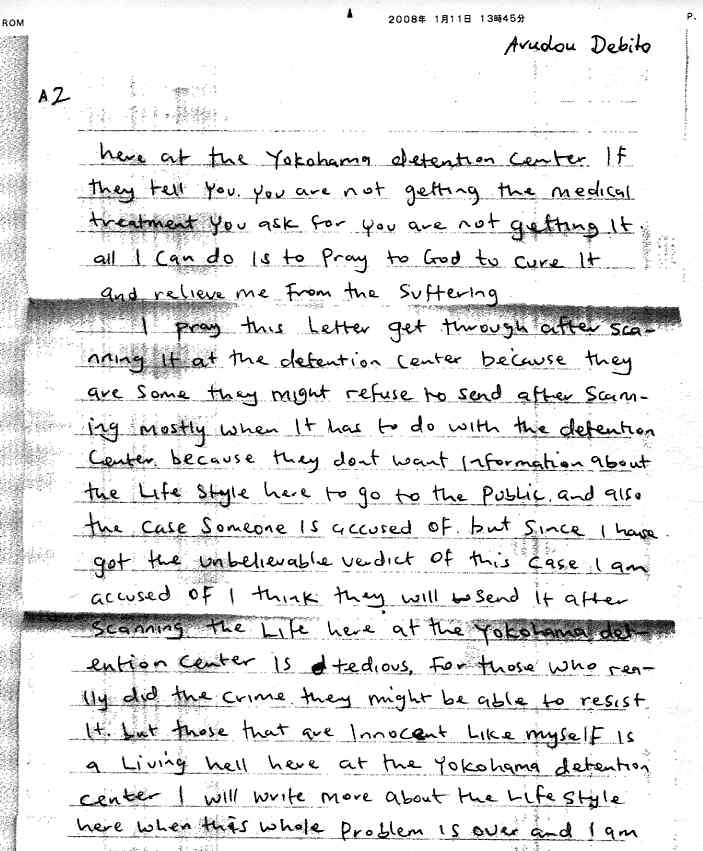 ROM
2008年 1月11日 13時45分
P.
Arudou Debito
A2
here at the Yokohama detention center. If
they tell you. you are not getting the medical
treatment you ask for you are not getting It.
all I can do Is to Pray to God to cure It
and relieve me From the Suffering
I pray this Letter get through after sca-
nning It at the detention center because they
are some they might refuse to send after scann-
ing mostly when It has to do with the detention
Center. because they dont want Information about
the Life Style here to go to the Public. and also
the case Someone Is accused of. but Since I have
got the unbelievable verdict of this case I am
accused of I think they will send It after
scanning the Life here at the Yokohama det-
ention center Is tedious, For those who rea-
lly did the crime they might be able to resist
It. but those that are Innocent Like myself Is
a Living hell here at the Yokohama detention
center I will write more about the Life Style
here when this whole Problem Is over and I am